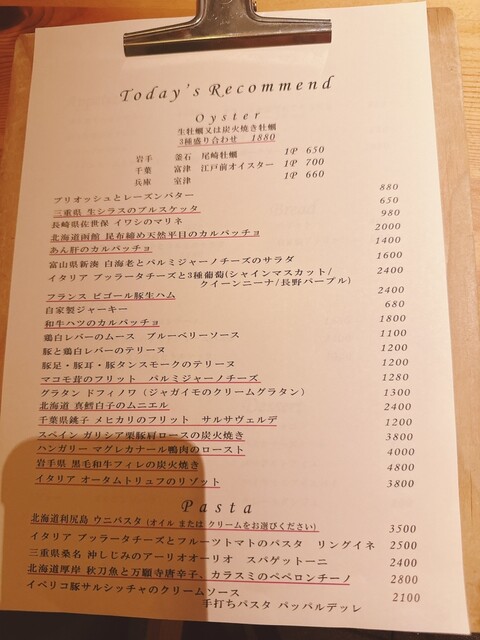 Today's Recommend
Oyster
生牡蠣又は炭火焼き牡蠣
3種盛り合わせ 1880
岩手 釜石 尾崎牡蠣 1P 650
千葉 富津 江戸前オイスター 1P 700
兵庫 室津 1P 660
ブリオッシュとレーズンバター 880
三重県 生シラスのブルスケッタ 650
長崎県佐世保 イワシのマリネ 980
北海道函館 昆布締め天然平目のカルパッチョ 2000
あん肝のカルパッチョ 1400
富山県新湊 白海老とパルミジャーノチーズのサラダ 1600
イタリア ブッラータチーズと3種葡萄(シャインマスカット/ 2400
クイーンニーナ/長野パープル)
フランス ビゴール豚生ハム 2400
自家製ジャーキー 680
和牛ハツのカルパッチョ 1800
鶏白レバーのムース ブルーベリーソース 1100
豚と鶏白レバーのテリーヌ 1200
豚足・豚耳・豚タンスモークのテリーヌ 1200
マコモ茸のフリット パルミジャーノチーズ 1280
グラタン ドフィノワ（ジャガイモのクリームグラタン） 1300
北海道 真鱈白子のムニエル 2400
千葉県銚子 メヒカリのフリット サルサヴェルデ 1200
スペイン ガリシア栗豚肩ロースの炭火焼き 3800
ハンガリー マグレカナール鴨肉のロースト 4000
岩手県 黒毛和牛フィレの炭火焼き 4800
イタリア オータムトリュフのリゾット 3800
Pasta
北海道利尻島 ウニパスタ (オイル または クリームをお選びください) 3500
イタリア ブッラータチーズとフルーツトマトのパスタ リングイネ 2500
三重県桑名 沖しじみのアーリオオーリオ スパゲットーニ 2400
北海道厚岸 秋刀魚と万願寺唐辛子、カラスミのペペロンチーノ 2800
イベリコ豚サルシッチャのクリームソース 2100
手打ちパスタ パッパルデッレ